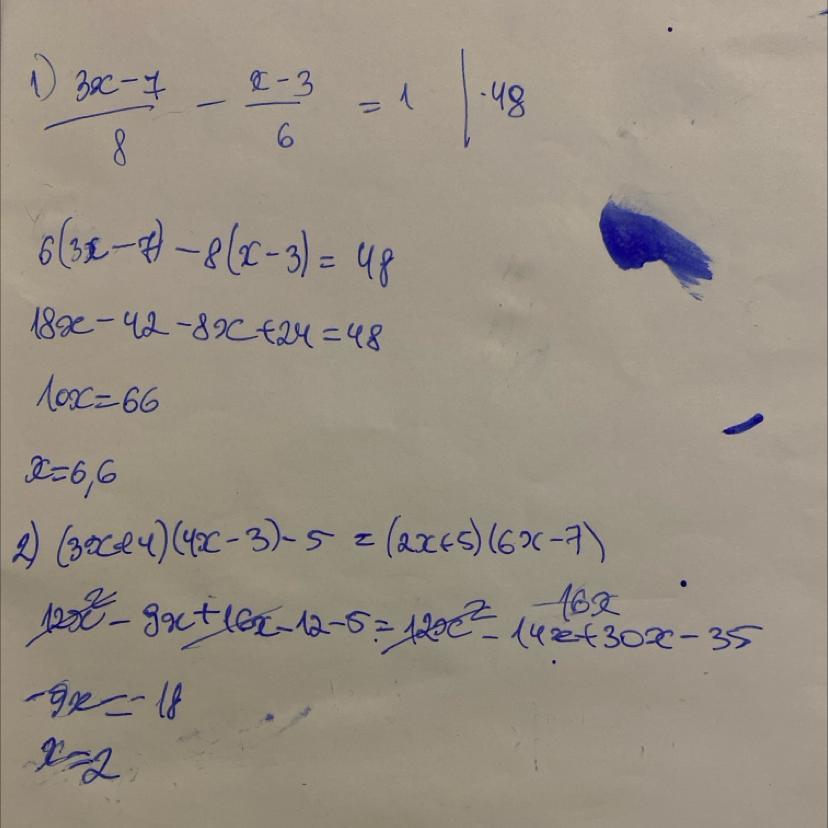 1) (3x-7)/8 - (x-3)/6 = 1 | ·48
6(3x-7) - 8(x-3) = 48
18x - 42 - 8x + 24 = 48
10x = 66
x = 6,6
2) (3x+4)(4x-3) - 5 = (2x+5)(6x-7)
16x
12x² - 9x + 16x - 12 - 5 = 12x² - 14x + 30x - 35
-9x = -18
x = 2